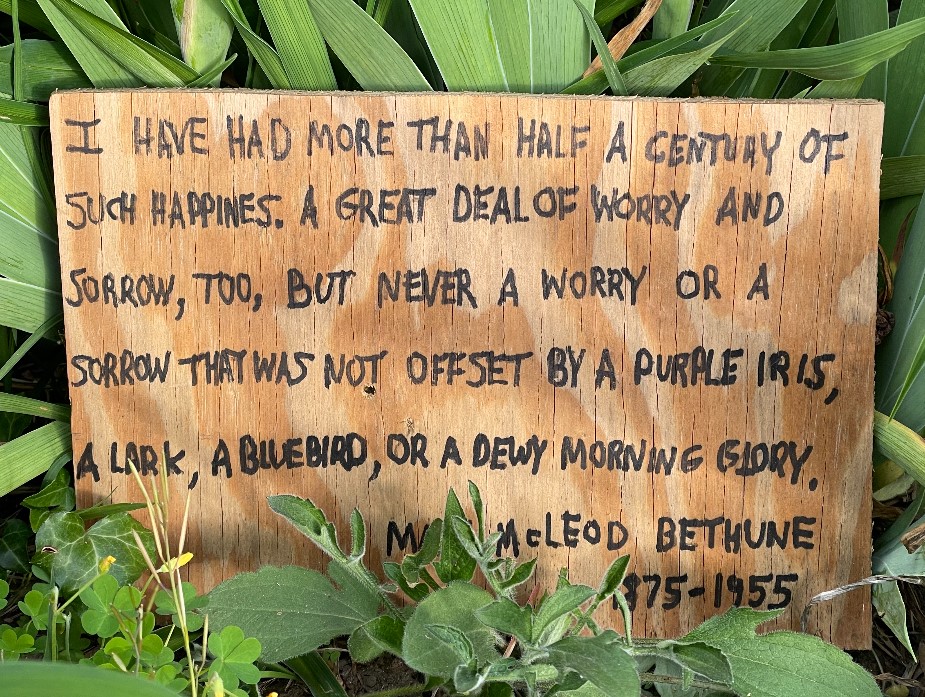 I HAVE HAD MORE THAN HALF A CENTURY OF
SUCH HAPPINES. A GREAT DEAL OF WORRY AND
SORROW, TOO, BUT NEVER A WORRY OR A
SORROW THAT WAS NOT OFFSET BY A PURPLE IRIS,
A LARK, A BLUEBIRD, OR A DEWY MORNING GLORY.
McLEOD BETHUNE
875-1955